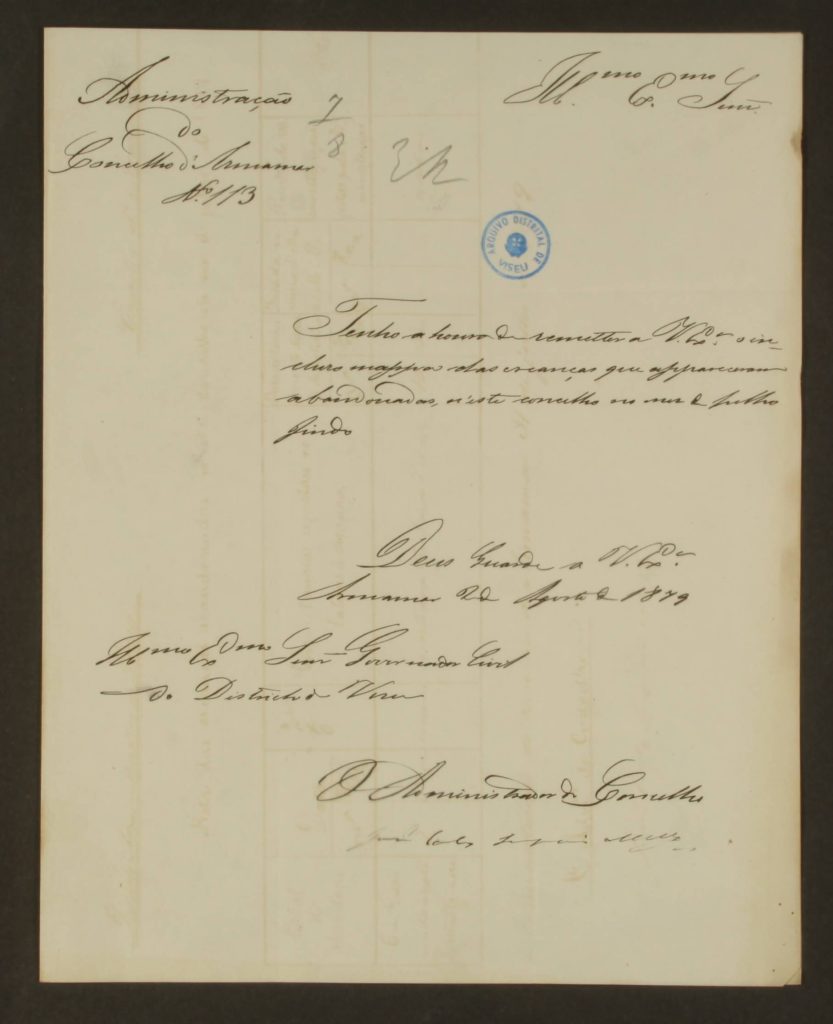 Administração
do
Concelho d'Armamar
N.º 113
7
8
Ill.mo Ex.mo Senr.
ARQUIVO DISTRITAL DE
VISEU
Tenho a honra de remetter a V. Ex.ª o in-
cluso mappa das creanças que appareceram
abandonadas, n'este concelho no mez de Julho
findo
Deus Guarde a V. Ex.ª
Armamar 2 de Agosto de 1879
Ill.mo Ex.mo Senr. Governador Civil
do Districto de Viseu
O Administrador do Concelho